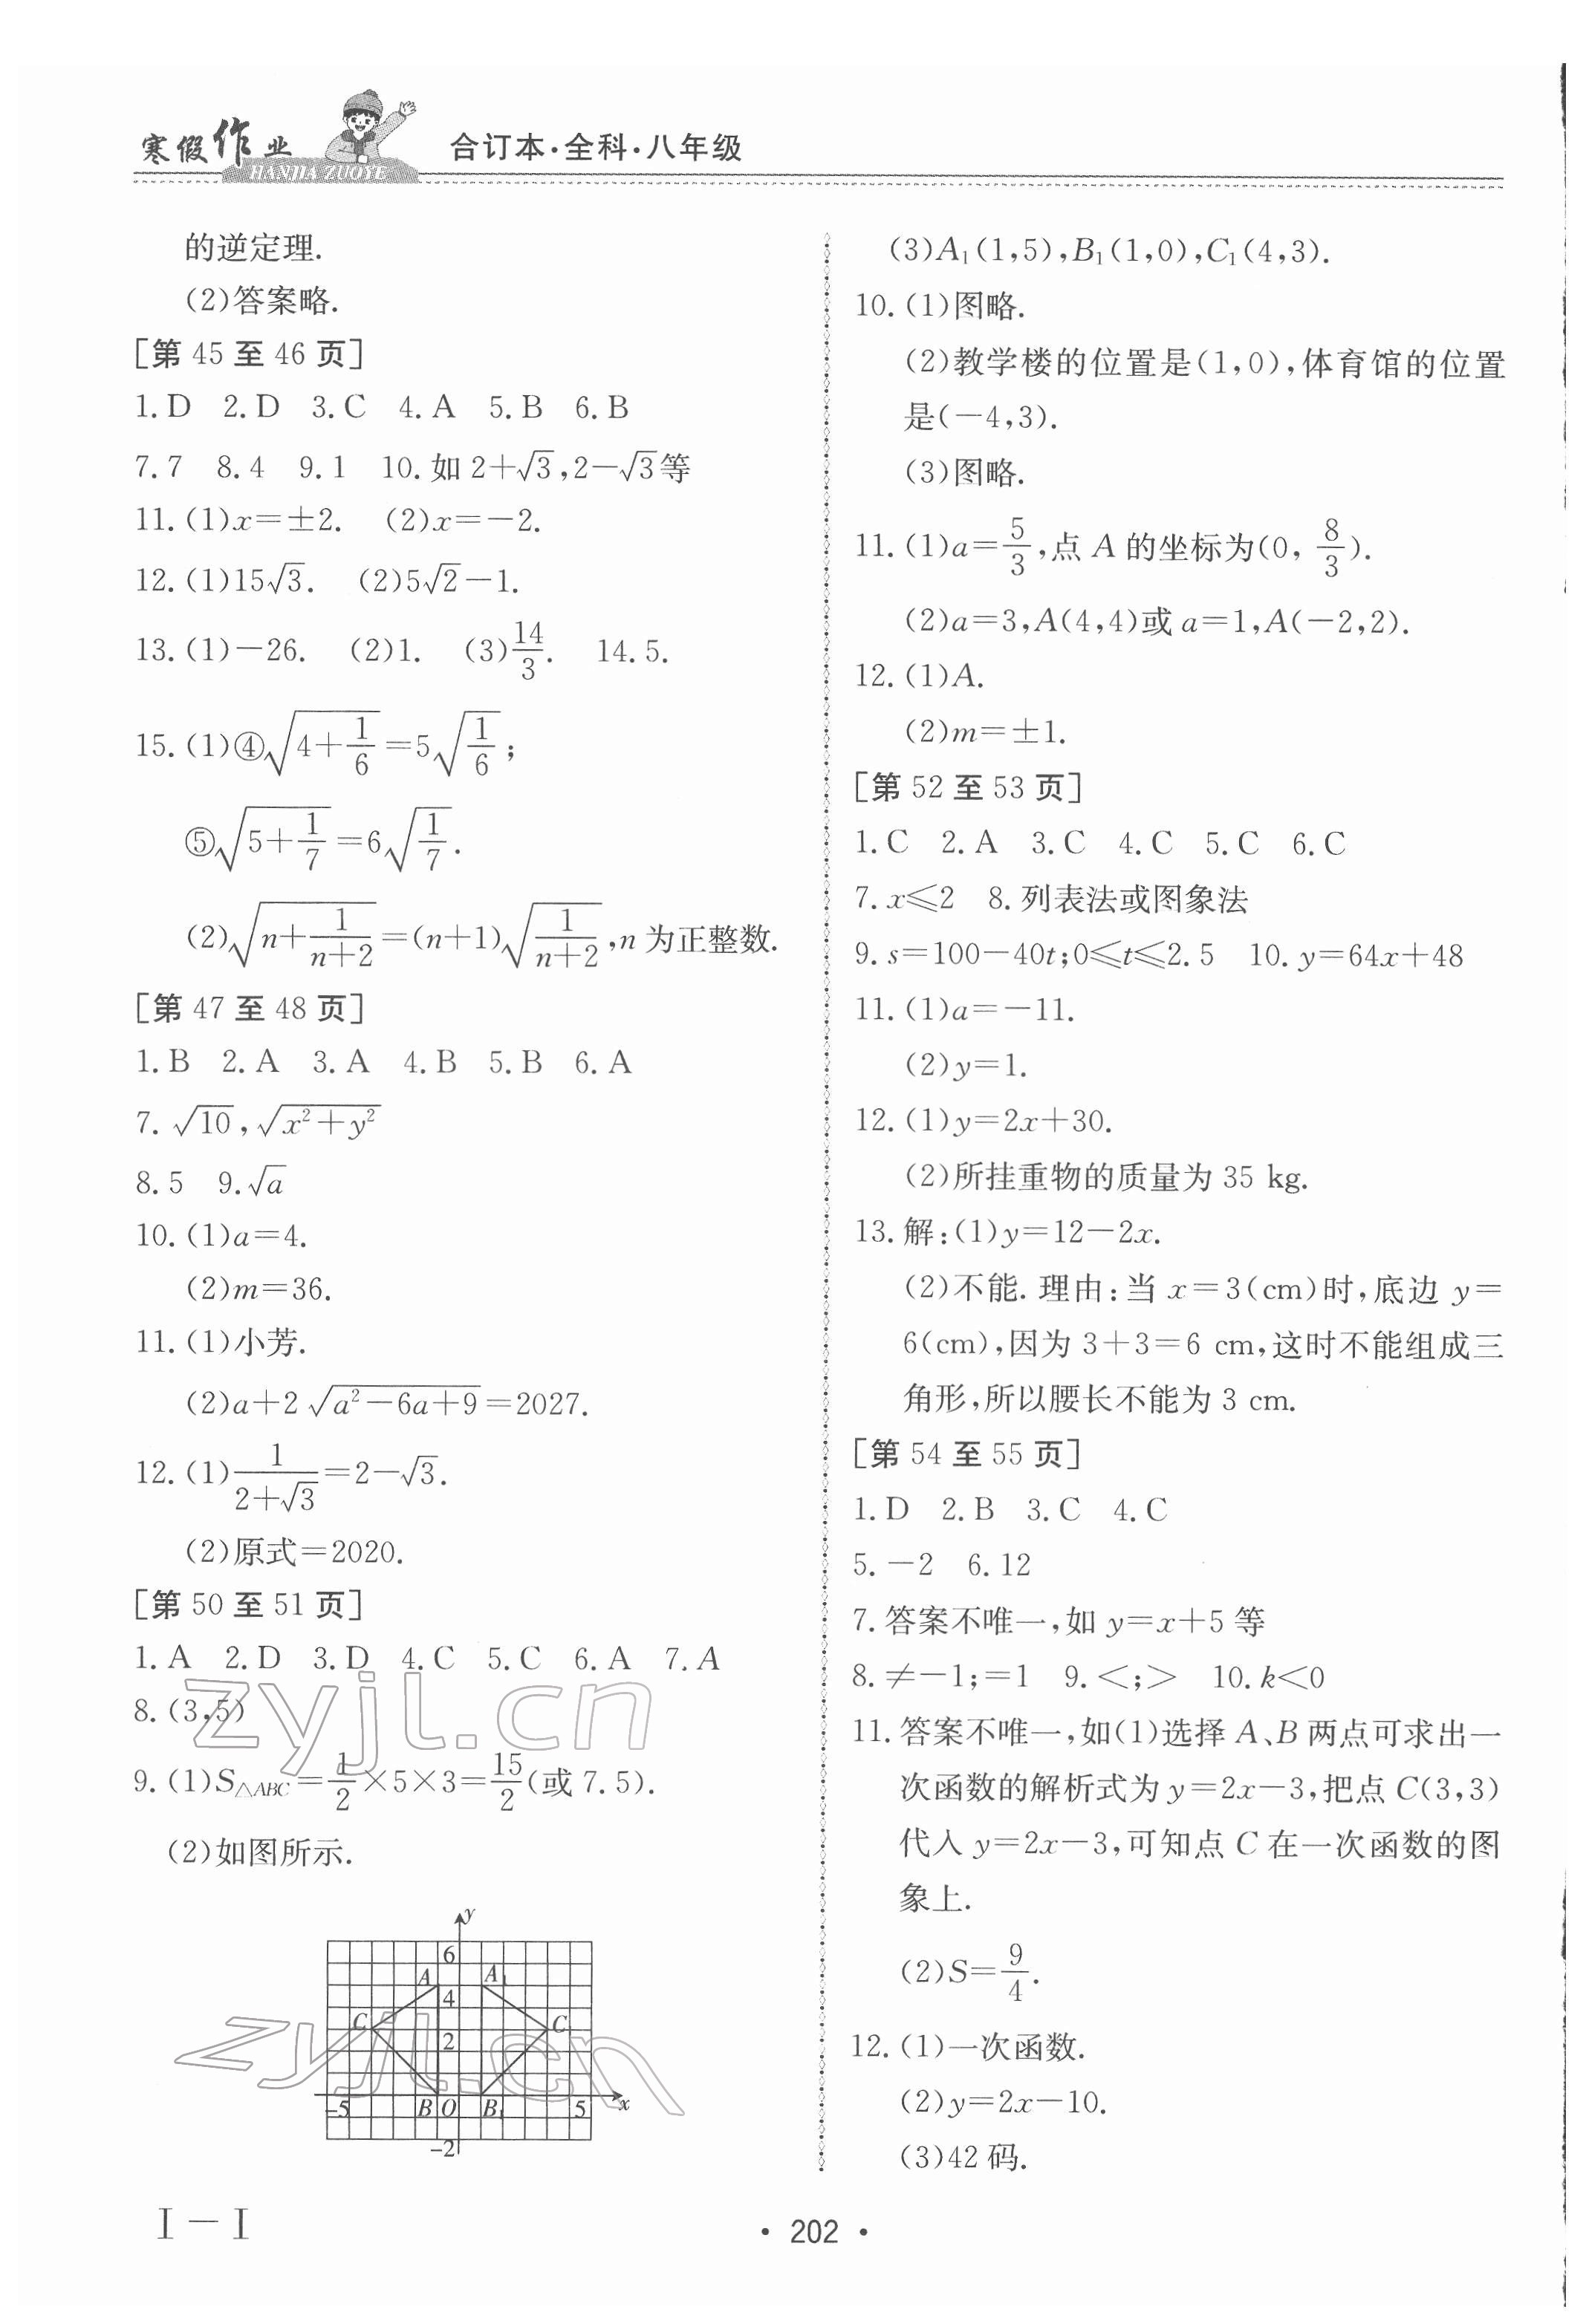 寒假作业
HANJIA ZUOYE
合订本·全科·八年级
的逆定理.
(2)答案略.
[第 45 至 46 页]
1. D 2. D 3. C 4. A 5. B 6. B
7. 7 8. 4 9. 1 10. 如 2+√3,2−√3等
11. (1)x=±2. (2)x=−2.
12. (1)15√3. (2)5√2−1.
13. (1)−26. (2)1. (3)14/3. 14. 5.
15. (1)④√(4+1/6)=5√(1/6);
⑤√(5+1/7)=6√(1/7).
(2)√(n+1/(n+2))=(n+1)√(1/(n+2)),n 为正整数.
[第 47 至 48 页]
1. B 2. A 3. A 4. B 5. B 6. A
7. √10,√(x²+y²)
8. 5 9. √a
10. (1)a=4.
(2)m=36.
11. (1)小芳.
(2)a+2√(a²−6a+9)=2027.
12. (1)1/(2+√3)=2−√3.
(2)原式=2020.
[第 50 至 51 页]
1. A 2. D 3. D 4. C 5. C 6. A 7. A
8. (3,5)
9. (1)S△ABC=1/2×5×3=15/2(或 7.5).
(2)如图所示.
y
6
A A1
4
C C
2
−5 B O B1 5 x
−2
(3)A₁(1,5),B₁(1,0),C₁(4,3).
10. (1)图略.
(2)教学楼的位置是(1,0),体育馆的位置
是(−4,3).
(3)图略.
11. (1)a=5/3,点 A 的坐标为(0, 8/3).
(2)a=3,A(4,4)或 a=1,A(−2,2).
12. (1)A.
(2)m=±1.
[第 52 至 53 页]
1. C 2. A 3. C 4. C 5. C 6. C
7. x≤2 8. 列表法或图象法
9. s=100−40t;0≤t≤2.5 10. y=64x+48
11. (1)a=−11.
(2)y=1.
12. (1)y=2x+30.
(2)所挂重物的质量为 35 kg.
13. 解:(1)y=12−2x.
(2)不能. 理由:当 x=3(cm)时,底边 y=
6(cm),因为 3+3=6 cm,这时不能组成三
角形,所以腰长不能为 3 cm.
[第 54 至 55 页]
1. D 2. B 3. C 4. C
5. −2 6. 12
7. 答案不唯一,如 y=x+5 等
8. ≠−1;=1 9. <;> 10. k<0
11. 答案不唯一,如(1)选择 A、B 两点可求出一
次函数的解析式为 y=2x−3,把点 C(3,3)
代入 y=2x−3,可知点 C 在一次函数的图
象上.
(2)S=9/4.
12. (1)一次函数.
(2)y=2x−10.
(3)42 码.
Ⅰ−Ⅰ
· 202 ·
zyjl.cn
zyjl.cn